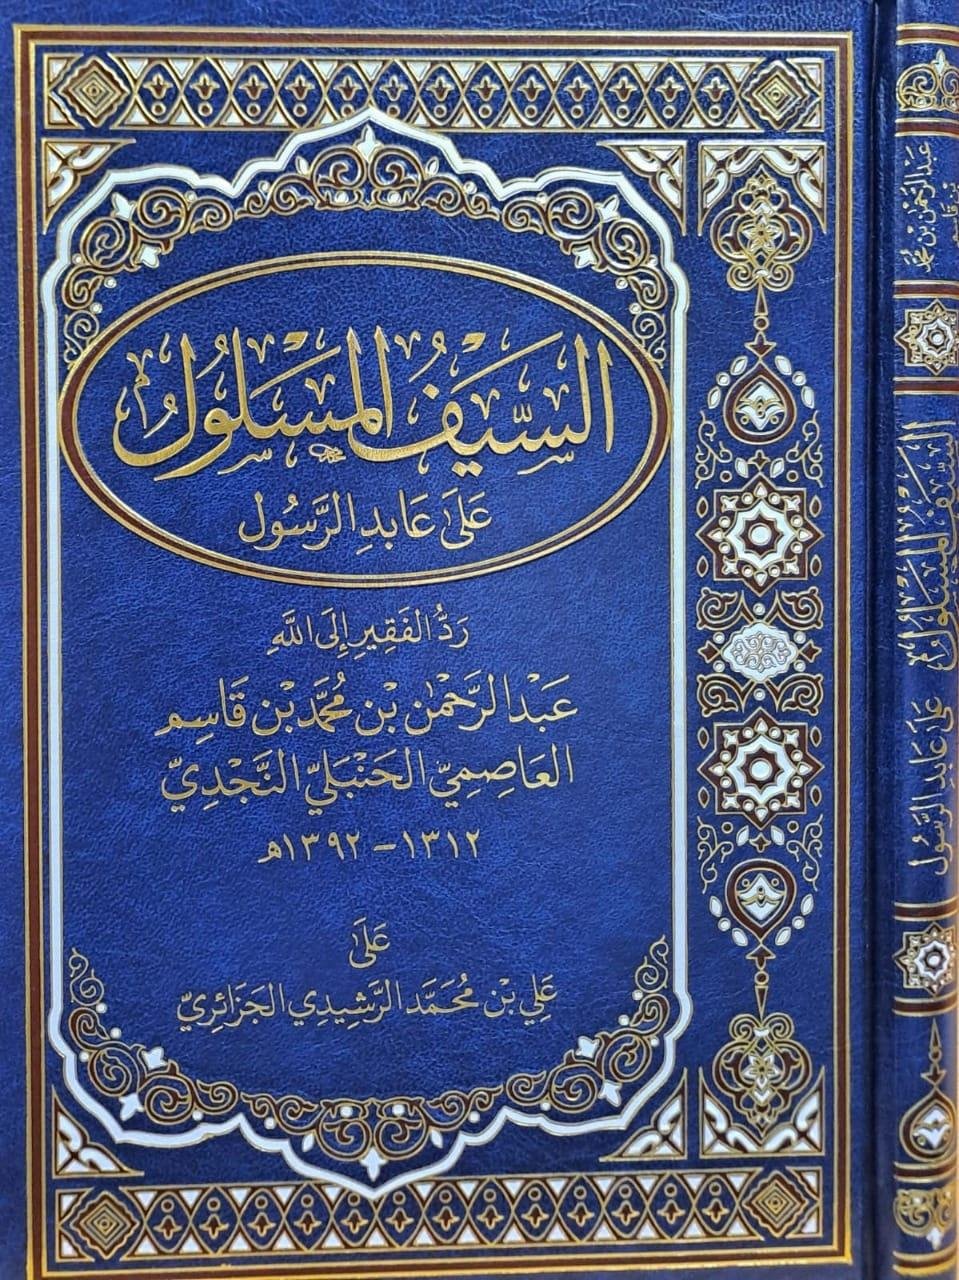 السَّيْفُ المَسْلُولُ
عَلَى عَابِدِ الرَّسُول
رَدُّ الفَقِيرِ إِلَى اللَّهِ
عَبْدِ الرَّحْمٰنِ بْنِ مُحَمَّدِ بْنِ قَاسِم
العَاصِمِيّ الحَنْبَلِيّ النَّجْدِيّ
١٣١٢ - ١٣٩٢هـ
عَلَى
عَلِي بْنِ مُحَمَّد الرَّشِيدِي الجَزَائِرِيّ
عَبْدُ الرَّحْمٰنِ بْنِ مُحَمَّد
بْنِ قَاسِم
السَّيْفُ المَسْلُولُ
عَلَى عَابِدِ الرَّسُول